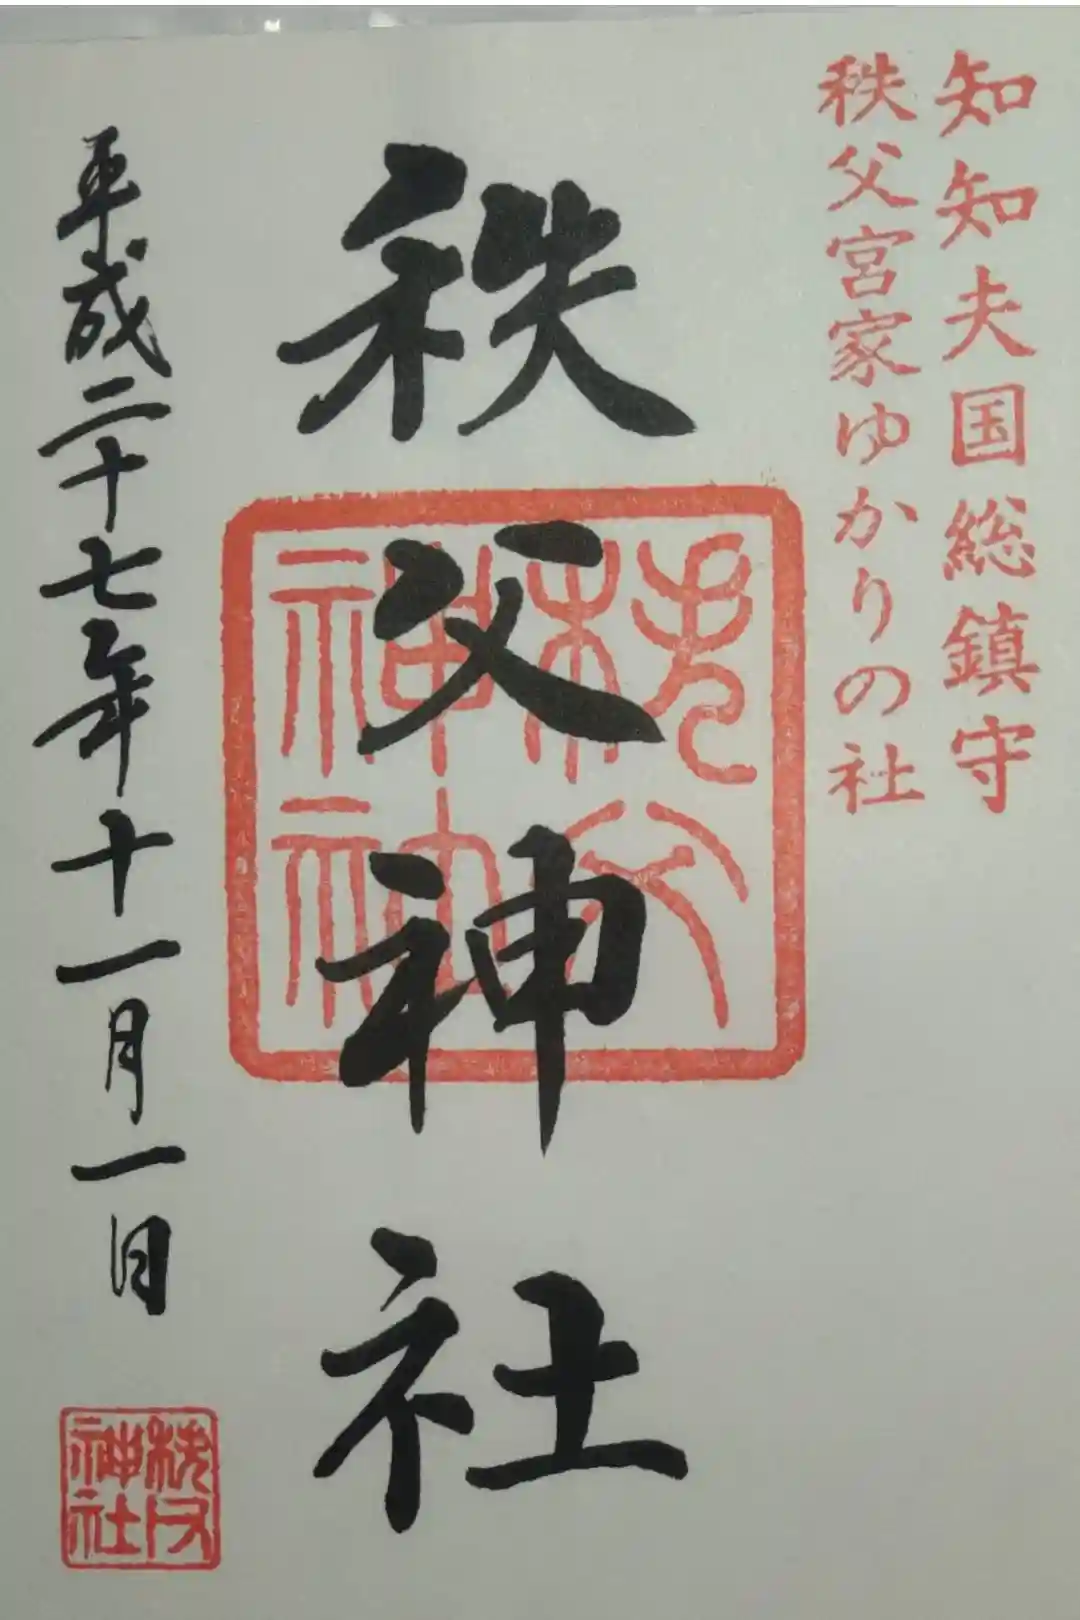 知知夫国総鎮守
秩父宮家ゆかりの社
秩父神社
秩父
神社
平成二十七年十一月一日
秩父
神社